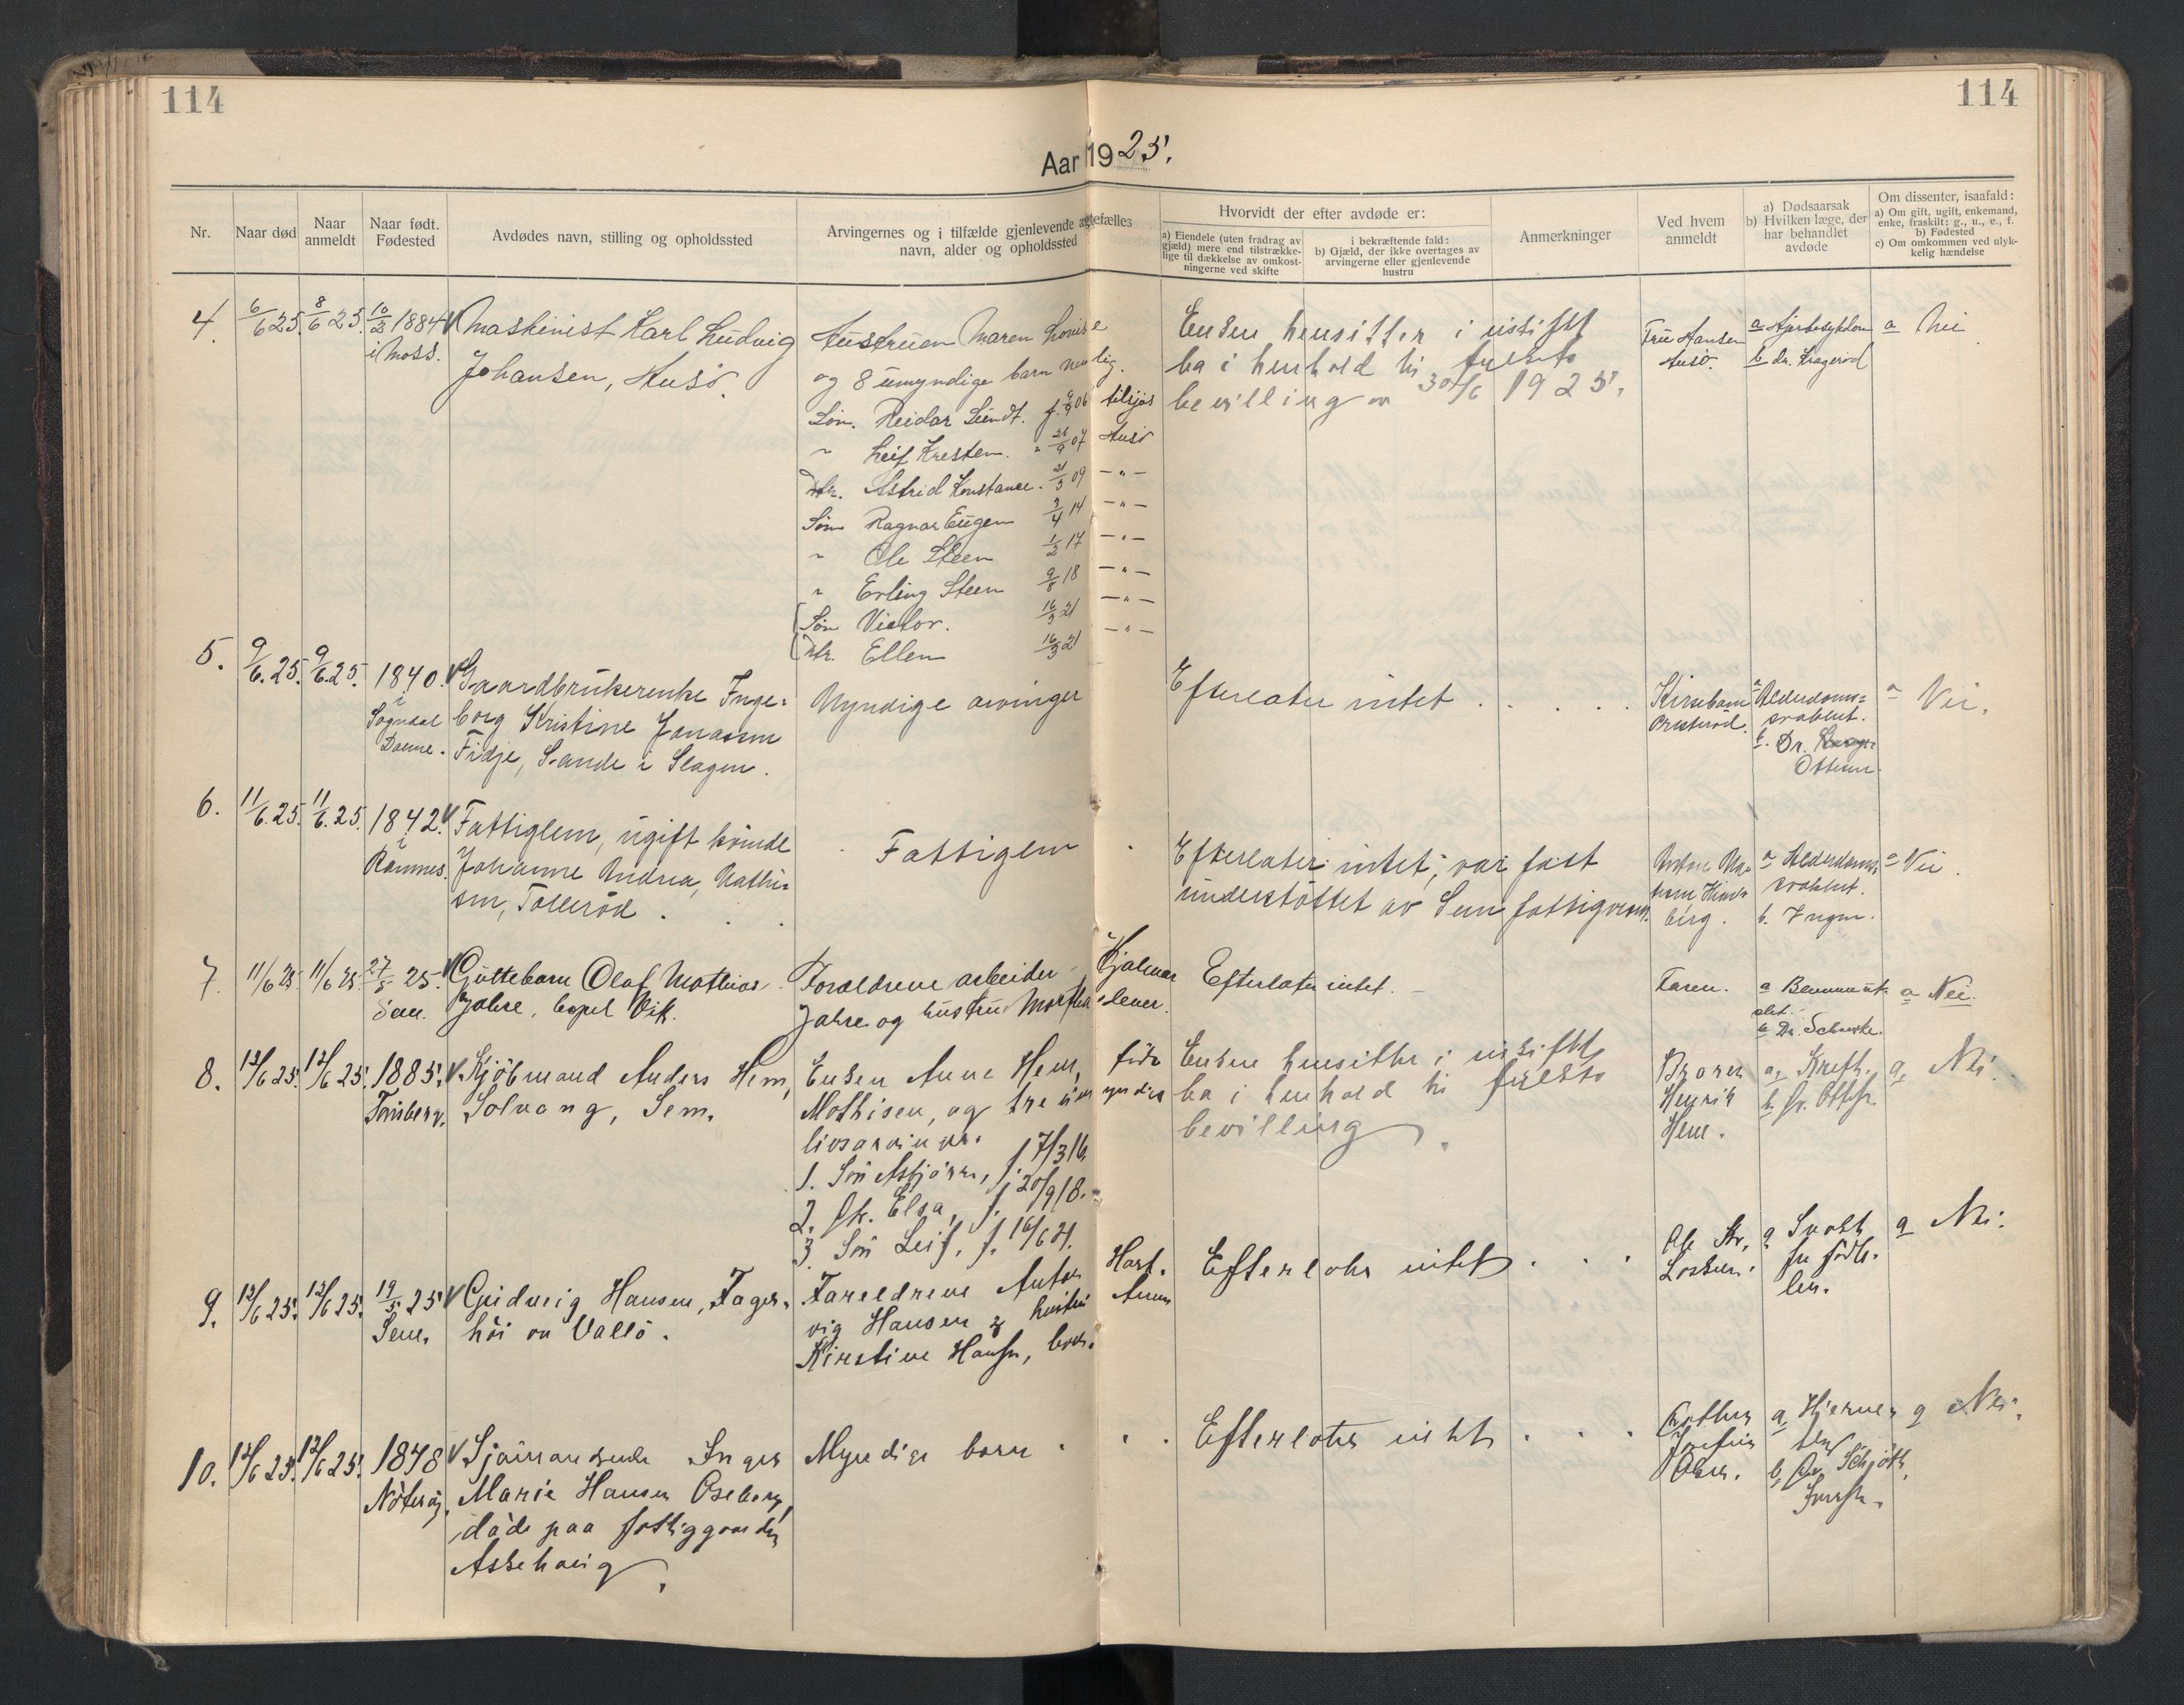 114
114
Aar 1925.
Nr.
Naar død
Naar anmeldt
Naar født. Fødested
Avdødes navn, stilling og opholdssted
Arvingernes og i tilfælde gjenlevende ægtefælles
navn, alder og opholdssted
Hvorvidt der efter avdøde er:
a) Eiendele (uten fradrag av
gjæld) mere end tilstrække-
lige til dækkelse av omkost-
ningerne ved skifte
i bekræftende fald:
b) Gjæld, der ikke overtages av
arvingerne eller gjenlevende
hustru
Anmerkninger
Ved hvem
anmeldt
a) Dødsaarsak
b) Hvilken læge, der
har behandlet
avdøde
Om dissenter, isaafald:
a) Om gift, ugift, enkemand,
enke, fraskilt: g., u., e., f.
b) Fødested
c) Om omkommen ved ulyk-
kelig hændelse
4. 6/6 25. 8/6 25. 10/2 1884
i Moss.
Maskinist Karl Ludvig
Johansen, Husö.
Hustruen Maren Lovise
og 8 umyndige barn nemlig.
Sön. Reidar Lundt. f. 9/9 06 tilsjös
" Leif Kresten. " 21/9 07 Husö
Dtr. Astrid Konstance. 21/3 09 — " —
Sön Ragnar Eugen 3/4 14 — " —
" Ole Steen 1/2 17 — " —
" Erling Steen 9/8 18 — " —
Sön Victor. 16/3 21 — " —
Dtr. Ellen 16/3 21 — " —
Enken hensitter i uskiftet
bo i henhold til
bevilling av 30/6 1925.
Fru Hansen
Husö.
a Hjertesykdom
b dr. Kragerod
a Nei
5. 9/6. 25. 9/6. 25. 1840.
i
Sogndal
Dalene.
Gaardbrukerenke Inge-
borg Kristine Jonassen
Fidje, Sande i Slagen.
Myndige arvinger
Efterlater intet . . . .
Kirsebom
a Alderdoms-
svakhet.
b. Dr.
Ottersen.
a Nei.
6. 11/6. 25. 11/6. 25. 1842.
i
Ramnes.
Fattiglem, ugift kvinde
Johanne Andrea, Mathi-
sen, Tollerød . . .
Fattiglem
Efterlater intet; var fast
understöttet av Sem fattigvesen.
a Alderdoms-
svakhet.
b. Ingen.
a Nei.
7. 11/6 25. 11/6 25. 27/5 25.
Sem.
Guttebarn Olaf Mathias
Jahre, Vik.
Forældrene arbeider Hjalmar
Jahre og hustru Martha
Efterlater intet. —
Faren.
a
b Dr.
a Nei.
8. 12/6 25. 12/6 25. 1885.
Tønsberg.
Kjöbmand Anders Hem,
Solvang, Sem.
Enken Anne Hem, född
Mathisen, og tre umyndige
livsarvinger.
1. Sön Asbjörn, f. 7/3 16.
2. dtr. Elsa, f. 20/9 18.
3. Sön Leif, f. 16/6 21.
Enken hensitter i uskiftet
bo i henhold til
bevilling.
Broren
Henrik
Hem.
a, Kreft.
b,
a, Nei.
9. 12/6 25. 12/6 25. 19/5 25
Sem.
Gudveig Hansen, Fager-
höi on Vallö.
Foreldrene Anton Hart-
vig Hansen og hustru Anna
Kirstine Hansen,
Efterlater intet . . .
a Svakh.
fra föds-
len.
a Nei.
10. 12/6 25. 12/6 25. 1848
Nøterøy.
Sjömandsenke Inger
Marie Hansen Oseberg,
döde paa fattiggaarden
Askehaug.
Myndige barn . . .
Efterlater intet . . .
a, Hjerne-
b,
a Nei.